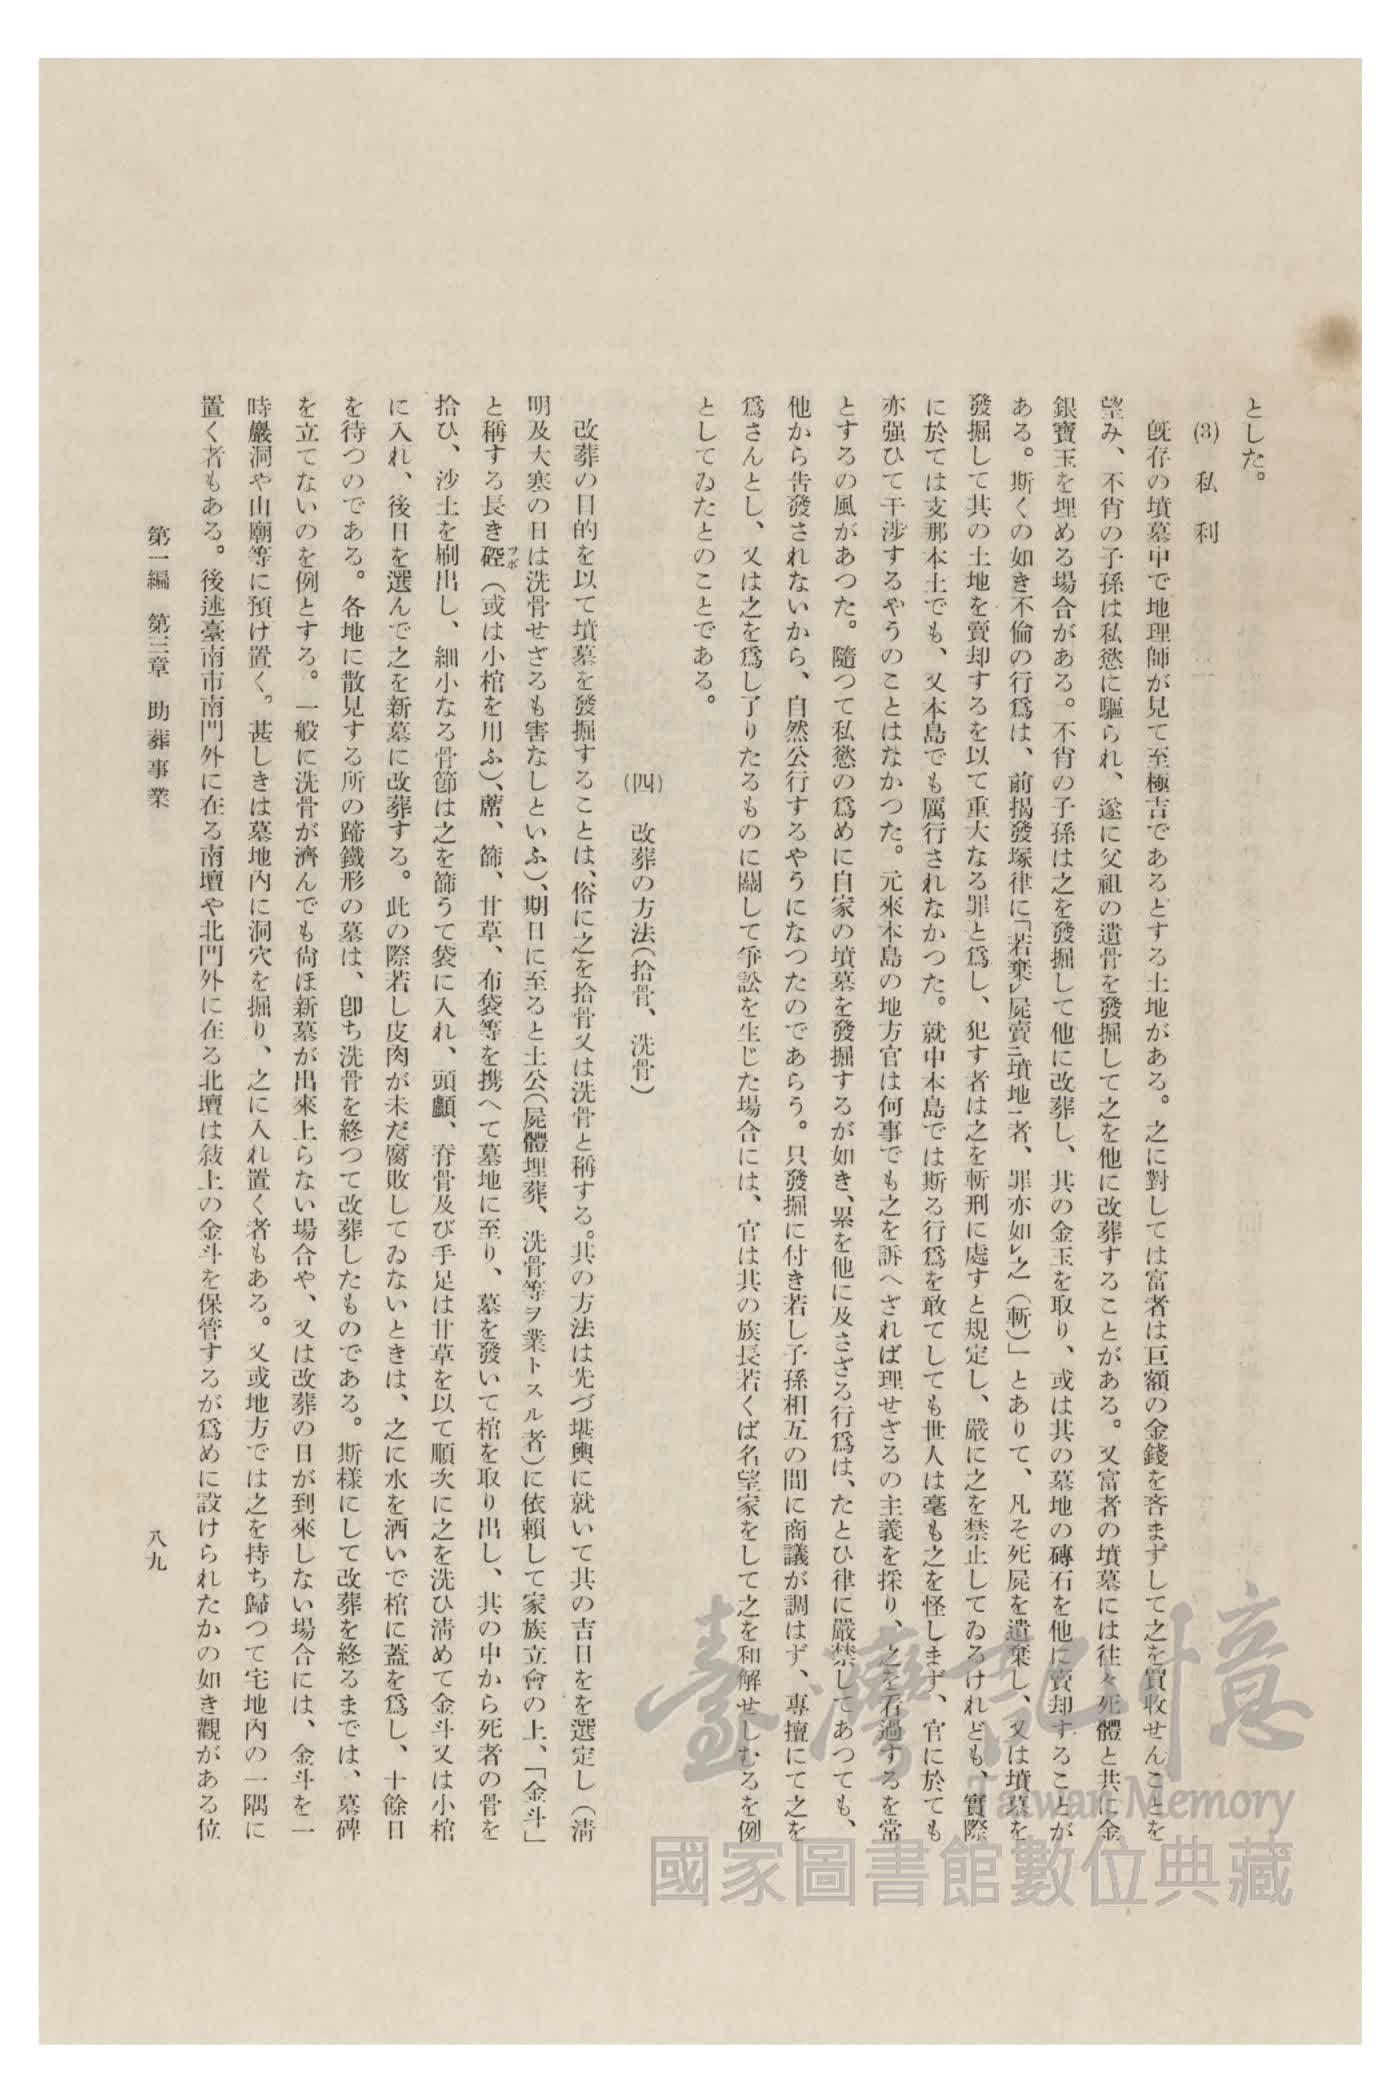 とした。
(3)　私　利
既存の墳墓中で地理師が見て至極吉であるとする土地がある。之に對しては富者は巨額の金錢を吝まずして之を買收せんことを
望み、不肖の子孫は私慾に驅られ、遂に父祖の遺骨を發掘して之を他に改葬することがある。又富者の墳墓には往々死體と共に金
銀寶玉を埋める場合がある。不肖の子孫は之を發掘して他に改葬し、其の金玉を取り、或は其の墓地の磚石を他に賣却することが
ある。斯くの如き不倫の行爲は、前揭發塚律に「若棄㆑屍賣㆓墳地㆒者、罪亦如㆑之（斬）」とありて、凡そ死屍を遺棄し、又は墳墓を
發掘して其の土地を賣却するを以て重大なる罪と爲し、犯す者は之を斬刑に處すと規定し、嚴に之を禁止してゐるけれども、實際
に於ては支那本土でも、又本島でも厲行されなかつた。就中本島では斯る行爲を敢てしても世人は毫も之を怪しまず、官に於ても
亦强ひて干涉するやうのことはなかつた。元來本島の地方官は何事でも之を訴へざれば理せざるの主義を採り、之を看過するを常
とするの風があつた。隨つて私慾の爲めに自家の墳墓を發掘するが如き、累を他に及さざる行爲は、たとひ律に嚴禁してあつても、
他から吿發されないから、自然公行するやうになつたのであらう。只發掘に付き若し子孫相互の間に商議が調はず、專擅にて之を
爲さんとし、又は之を爲し了りたるものに關して爭訟を生じた場合には、官は其の族長若くば名望家をして之を和解せしむるを例
としてゐたとのことである。
(四)　改葬の方法（拾骨、洗骨）
改葬の目的を以て墳墓を發掘することは、俗に之を拾骨又は洗骨と稱する。其の方法は先づ堪輿に就いて其の吉日をを選定し（淸
明及大寒の日は洗骨せざるも害なしといふ）、期日に至ると土公（屍體埋葬、洗骨等ヲ業トスル者）に依賴して家族立會の上、「金斗」
と稱する長き（或は小棺を用ふ）、蓆、篩、甘草、布袋等を携へて墓地に至り、墓を發いて棺を取り出し、其の中から死者の骨を
拾ひ、沙土を刷出し、細小なる骨節は之を篩うて袋に入れ、頭顱、脊骨及び手足は甘草を以て順次に之を洗ひ淸めて金斗又は小棺
に入れ、後日を選んで之を新墓に改葬する。此の際若し皮肉が未だ腐敗してゐないときは、之に水を洒いで棺に蓋を爲し、十餘日
を待つのである。各地に散見する所の蹄鐵形の墓は、卽ち洗骨を終つて改葬したものである。斯樣にして改葬を終るまでは、墓碑
を立てないのを例とする。一般に洗骨が濟んでも尙ほ新墓が出來上らない場合や、又は改葬の日が到來しない場合には、金斗を一
時巖洞や山廟等に預け置く。甚しきは墓地內に洞穴を掘り、之に入れ置く者もある。又或地方では之を持ち歸つて宅地內の一隅に
置く者もある。後述臺南市南門外に在る南壇や北門外に在る北壇は敍上の金斗を保管するが爲めに設けられたかの如き觀がある位
第一編　第三章　助葬事業
八九
臺灣記憶
Taiwan Memory
國家圖書館數位典藏